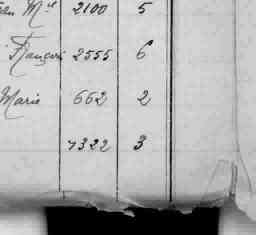 Mel 2100 5
François 2555 6
Marie 662 2
7322 3